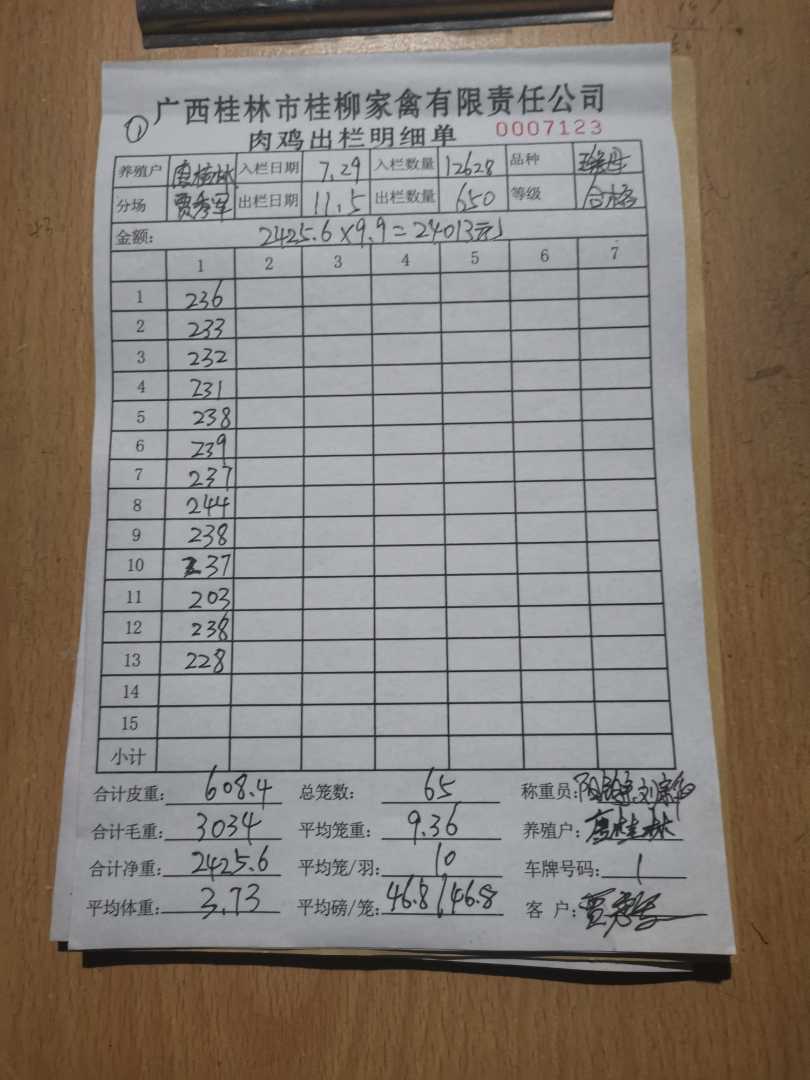 广西桂林市桂柳家禽有限责任公司
① 肉鸡出栏明细单 0007123
养殖户 唐桂林 入栏日期 7.29 入栏数量 12628 品种
分场 贾秀军 出栏日期 11.5 出栏数量 650 等级 合格
金额: 2425.6×9.9=24013元
1 2 3 4 5 6 7
1 236
2 233
3 232
4 231
5 238
6 239
7 237
8 244
9 238
10 237
11 203
12 238
13 228
14
15
小计
合计皮重: 608.4 总笼数: 65 称重员:
合计毛重: 3034 平均笼重: 9.36 养殖户: 唐桂林
合计净重: 2425.6 平均笼/羽: 10 车牌号码: 1
平均体重: 3.73 平均磅/笼: 46.8/46.8 客 户: 贾秀军